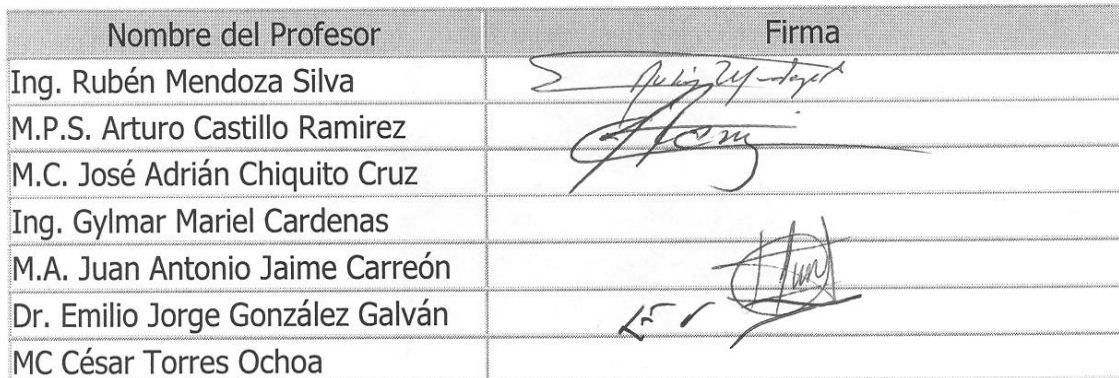 Nombre del Profesor Firma
Ing. Rubén Mendoza Silva
M.P.S. Arturo Castillo Ramirez
M.C. José Adrián Chiquito Cruz
Ing. Gylmar Mariel Cardenas
M.A. Juan Antonio Jaime Carreón
Dr. Emilio Jorge González Galván
MC César Torres Ochoa